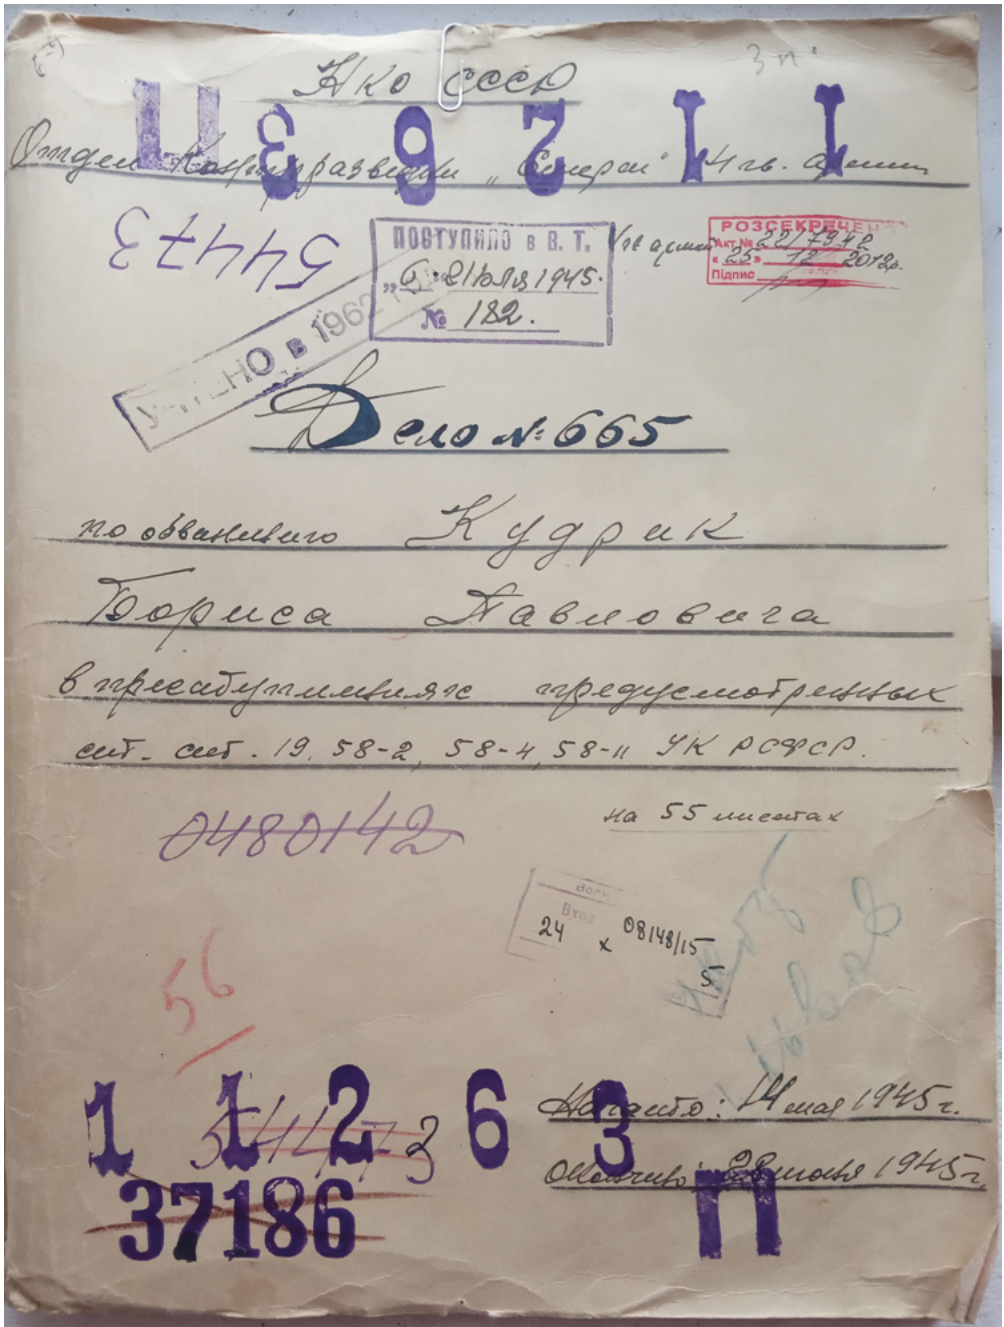 3 п.
НКО СССР
П 3 6 2 1 1
Отдел Контрразведки „Смерш" 4 гв. армии
54473
ПОСТУПИЛО в В. Т. 4 гв армии
„6" июля 1945.
№ 182.
РОЗСЕКРЕЧЕНО
Акт № 22/7942
« 25 » 12 2012р.
Підпис
УЧТЕНО в 1962 году
Дело № 665
по обвинению Кудрик
Бориса Павловича
в преступлениях предусмотренных
ст. ст. 19, 58-2, 58-4, 58-11 УК РСФСР.
0480142
на 55 листах
Вход
24 х 08148/15
5
56
Начато: 14 мая 1945 г.
1 1 2 6 3
54473
Окончено: 28 июня 1945 г.
37186
П